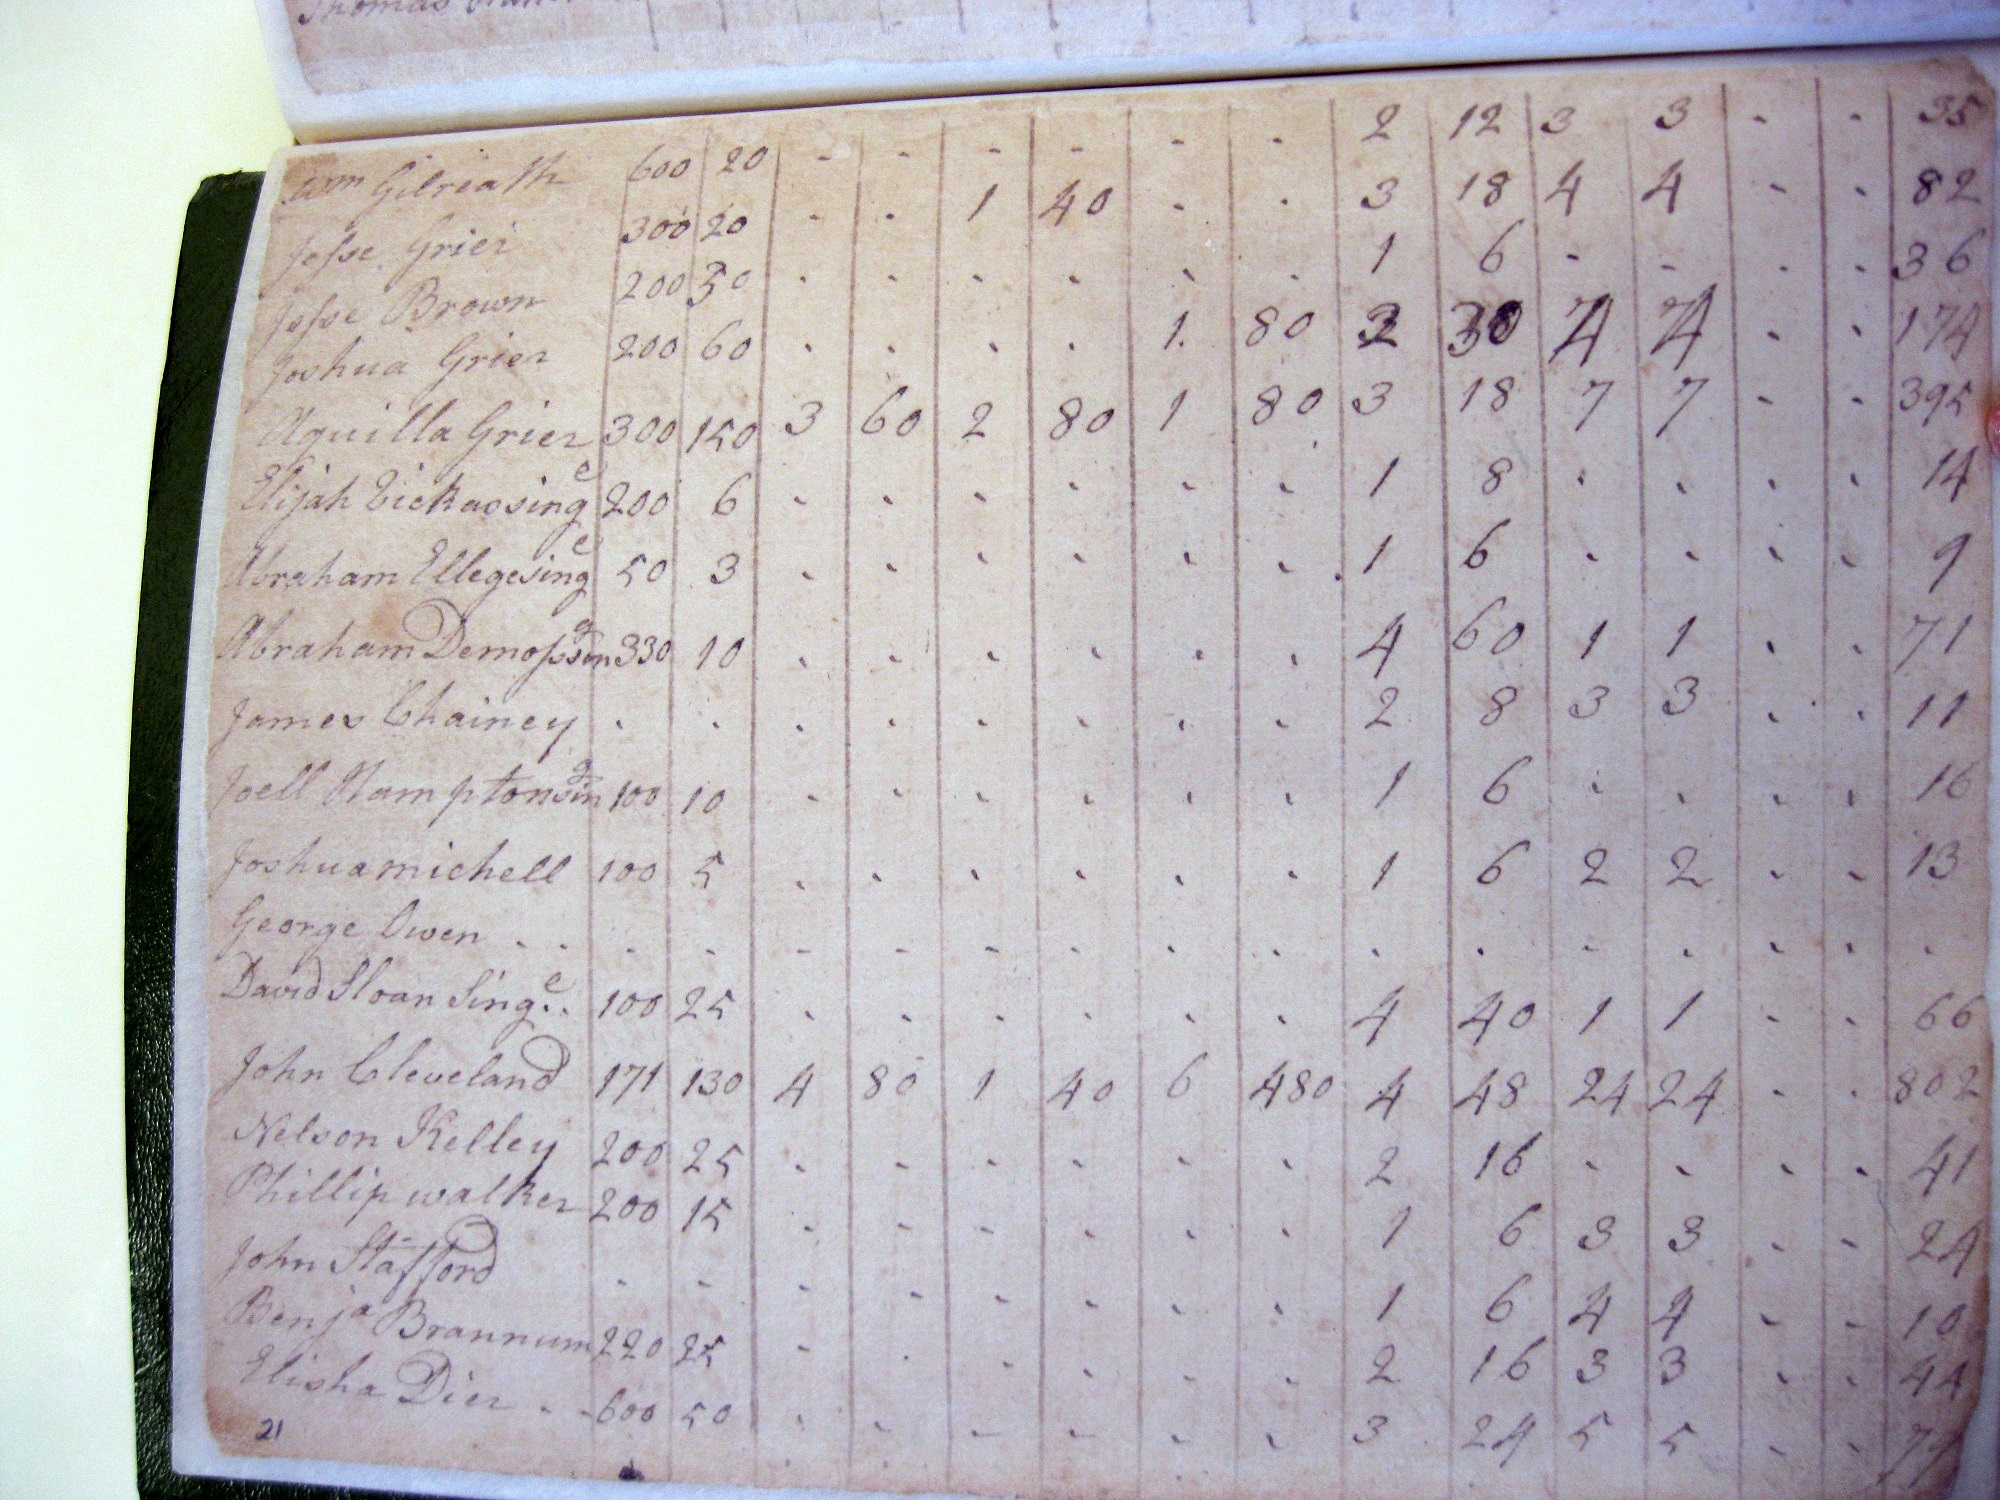 Thomas
Wm Gilreath 600 20 - - - - - - 2 12 3 3 - - 35
Jesse Grier 300 20 - - 1 40 - - 3 18 4 4 - - 82
Jesse Brown 200 30 - - - - - - 1 6 - - - - 36
Joshua Grier 200 60 - - - - 1 80 3 30 4 4 - - 174
Aquilla Grier 300 150 3 60 2 80 1 80 3 18 7 7 - - 395
Elijah Vickas singe 200 6 - - - - - - 1 8 - - - - 14
Abraham Ellege singe 50 3 - - - - - - 1 6 - - - - 9
Abraham Demoss senr 330 10 - - - - - - 4 60 1 1 - - 71
James Chainey - - - - - - - - 2 8 3 3 - - 11
Joell Hampton 100 10 - - - - - - 1 6 - - - - 16
Joshua michell 100 5 - - - - - - 1 6 2 2 - - 13
George Owen - - - - - - - - - - - - - - -
David Sloan Singe 100 25 - - - - - - 4 40 1 1 - - 66
John Cleveland 171 130 4 80 1 40 6 480 4 48 24 24 - - 802
Nelson Kelley 200 25 - - - - - - 2 16 - - - - 41
Phillip walker 200 15 - - - - - - 1 6 3 3 - - 24
John Stafford - - - - - - - - 1 6 4 4 - - 10
Benja Brannum 220 25 - - - - - - 2 16 3 3 - - 44
Elisha Dier 600 50 - - - - - - 3 24 5 5 - -
21